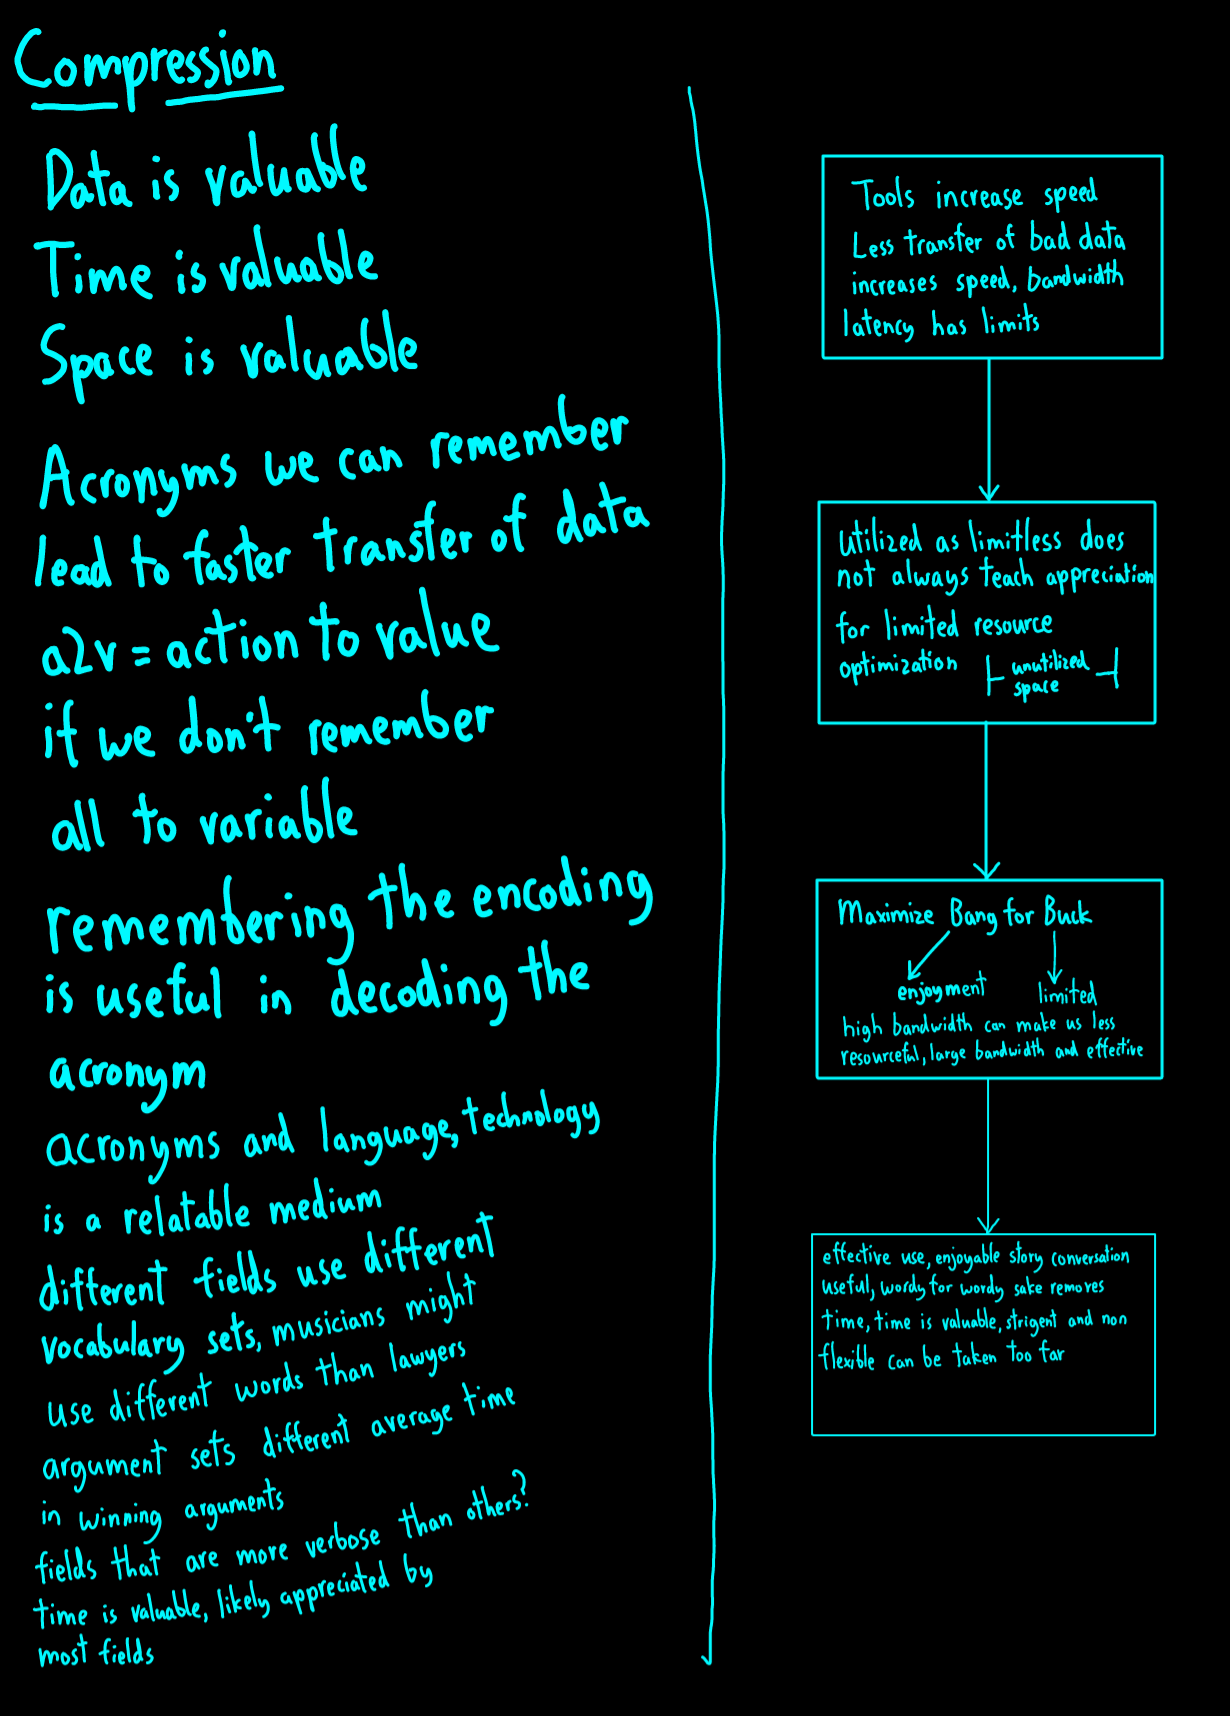 Compression
Data is valuable
Time is valuable
Space is valuable
Acronyms we can remember
lead to faster transfer of data
a2v = action to value
if we don't remember
all to variable
remembering the encoding
is useful in decoding the
acronym
acronyms and language, technology
is a relatable medium
different fields use different
vocabulary sets, musicians might
use different words than lawyers
argument sets different average time
in winning arguments
fields that are more verbose than others?
time is valuable, likely appreciated by
most fields
Tools increase speed
Less transfer of bad data
increases speed, bandwidth
latency has limits
Utilized as limitless does
not always teach appreciation
for limited resource
optimization unutilized
space
Maximize Bang for Buck
enjoyment limited
high bandwidth can make us less
resourceful, large bandwidth and effective
effective use, enjoyable story conversation
useful, wordy for wordy sake removes
time, time is valuable, strigent and non
flexible can be taken too far